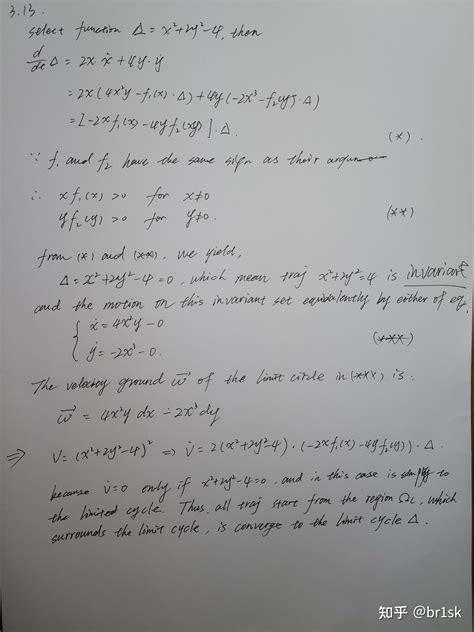 3.13.
select function Δ = x²+2y²-4, then
d/dt Δ = 2x·ẋ + 4y·ẏ
= 2x(4x²y - f₁(x)·Δ) + 4y(-2x³ - f₂(y)·Δ)
= [-2x f₁(x) - 4y f₂(y)]·Δ. (*).
∵ f₁ and f₂ have the same sign as their
∴ x f₁(x) > 0 for x≠0
y f₂(y) > 0 for y≠0. (**)
from (*) and (**), we yield,
Δ = x²+2y²-4 = 0, which mean traj x²+2y²=4 is invariant
and the motion on this invariant set equivalently by either of eq.
{ ẋ = 4x²y - 0
ẏ = -2x³ - 0. (***)
The velocity ground w⃗ of the limit circle in (***) is.
w⃗ = 4x²y dx - 2x³ dy
⇒ V = (x²+2y²-4)² ⇒ V̇ = 2(x²+2y²-4)·(-2x f₁(x) - 4y f₂(y))·Δ.
because V̇=0 only if x²+2y²-4=0, and in this case is simply to
the limited cycle. Thus, all traj start from the region Ω_L, which
surrounds the limit cycle, is converge to the limit cycle Δ.
知乎 @br1sk